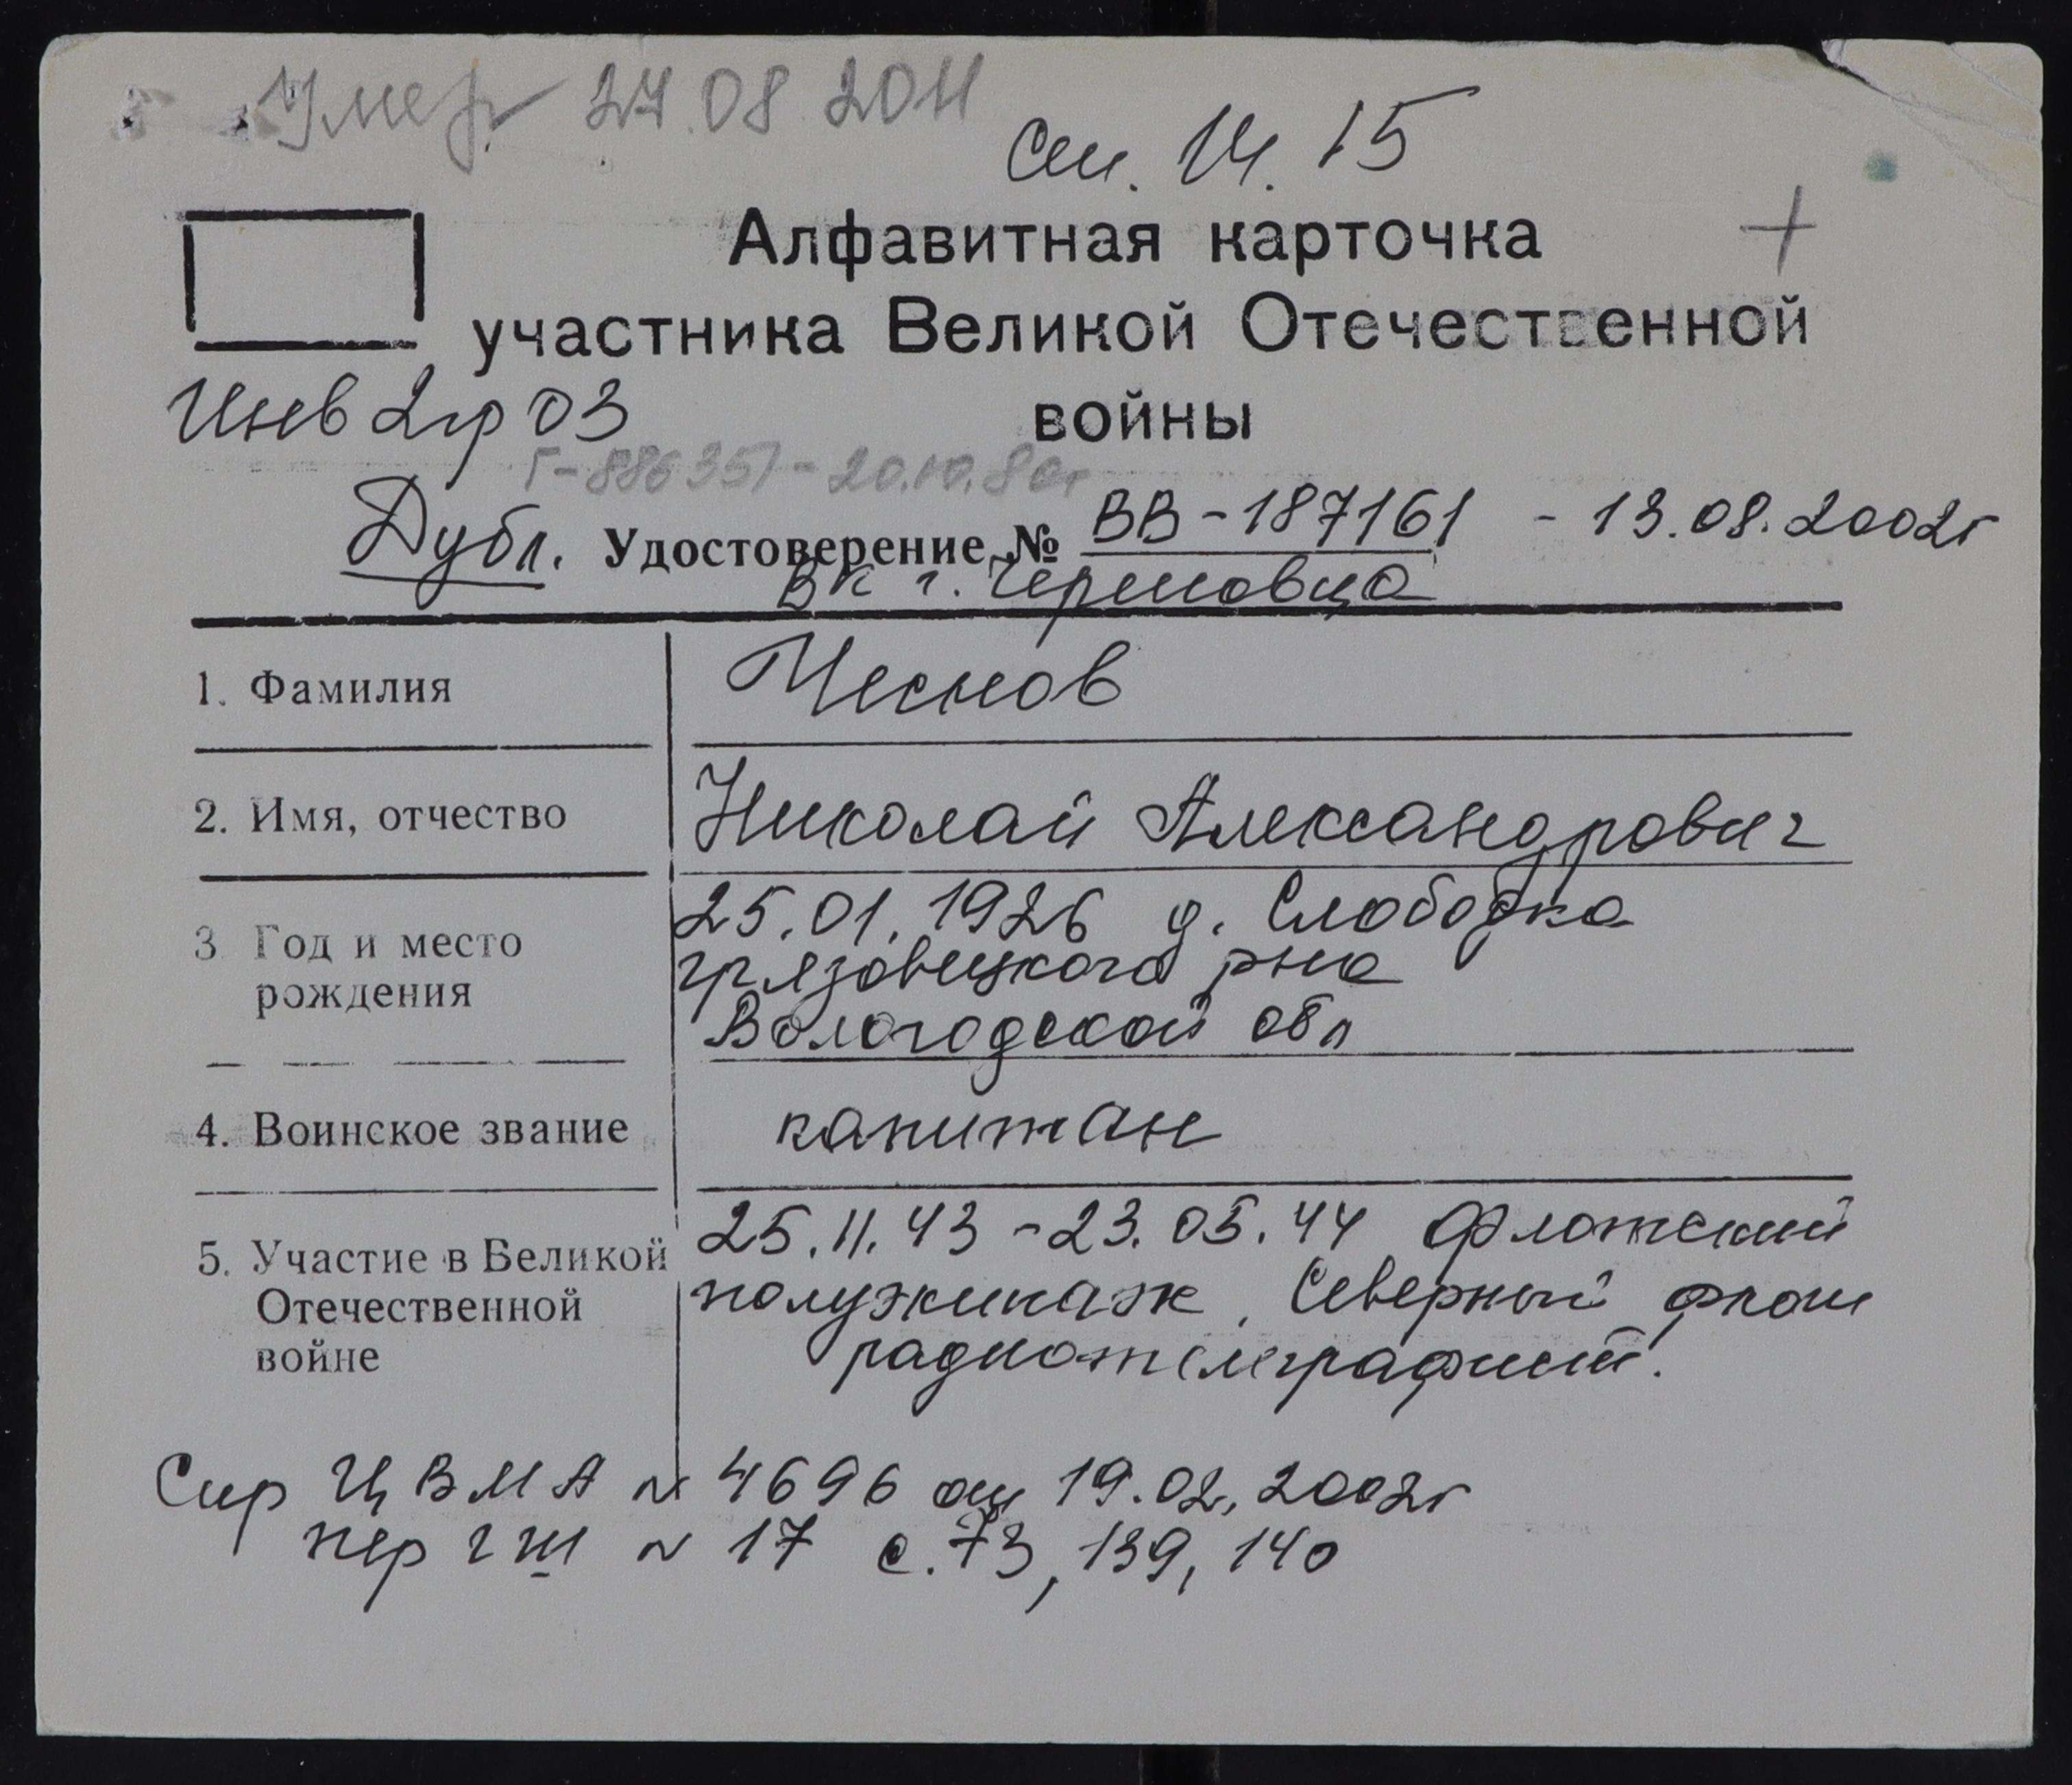 Умер 27.08.2011
см. 14.15
Алфавитная карточка
+
участника Великой Отечественной
войны
Инв 2гр 03
Г-886351-20.10.80г
Дубл. Удостоверение № ВВ-187161 - 13.08.2002г
ВК г. Череповца
1. Фамилия
Чеснов
2. Имя, отчество
Николай Александрович
3 Год и место
рождения
25.01.1926 д. Слободка
грязовецкого рна
Вологодской обл
4. Воинское звание
капитан
5. Участие в Великой
Отечественной
войне
25.11.43 - 23.05.44 Флотский
полуэкипаж, Северный флот
радиотелеграфист.
Спр ЦВМА № 4696 от 19.02.2002г
пер гш № 17 с. 73, 139, 140